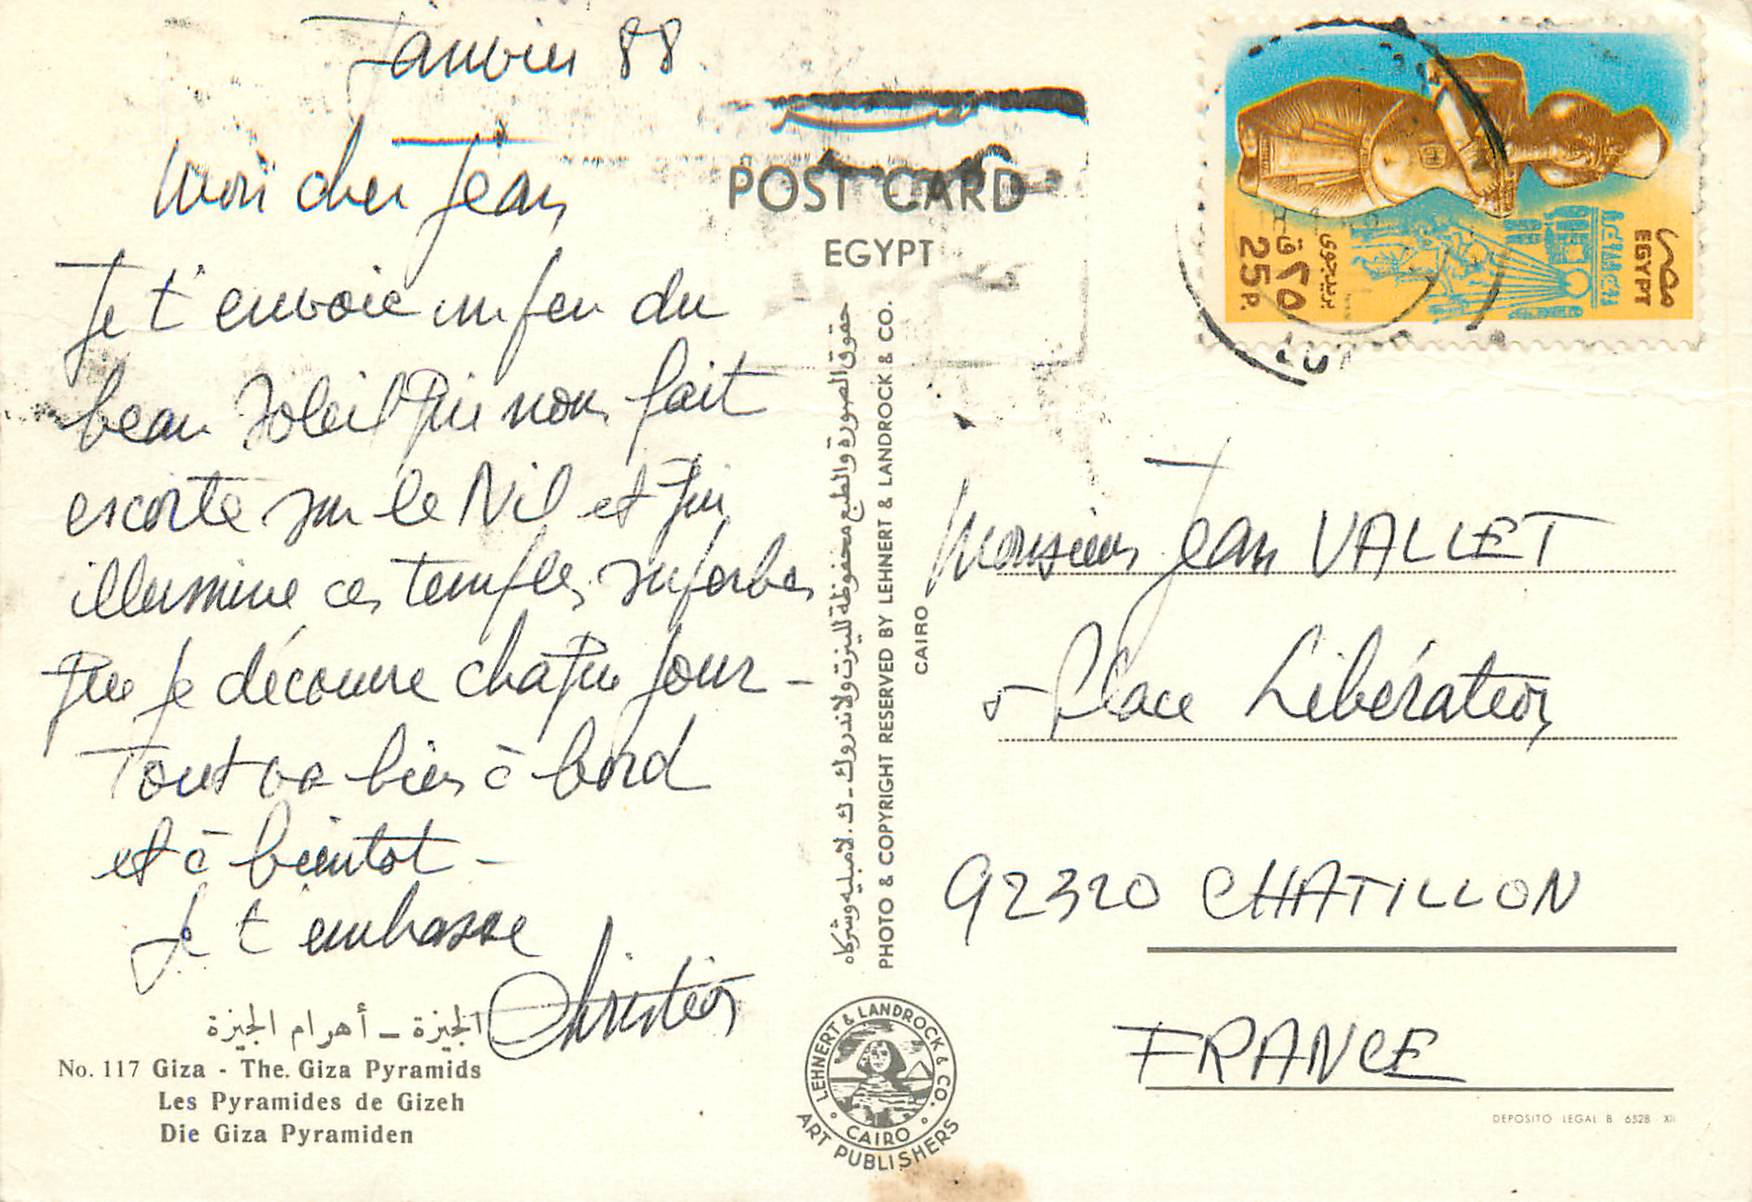 Janvier 88.
Mon cher Jean
Je t'envoie un peu du
beau Soleil qui nous fait
escorte sur le Nil et qui
illumine ces temples superbes
que je découvre chaque jour -
Tout va bien à bord
et à bientot -
Je t'embrasse
Christian
الجيزة ــ أهرام الجيزة
No. 117 Giza - The. Giza Pyramids
Les Pyramides de Gizeh
Die Giza Pyramiden
POST CARD
EGYPT
حقوق الصورة والطبع محفوظة للينرت ولاندروك ـ ك. لامبليه وشركاه
PHOTO & COPYRIGHT RESERVED BY LEHNERT & LANDROCK & CO.
CAIRO
LEHNERT & LANDROCK & CO.
CAIRO
ART PUBLISHERS
مصر
EGYPT
بريد جوى
٢٥ ق
25 P.
Monsieur Jean VALLET
5 Place Libération
92320 CHATILLON
FRANCE
DEPOSITO LEGAL B 6528 XII